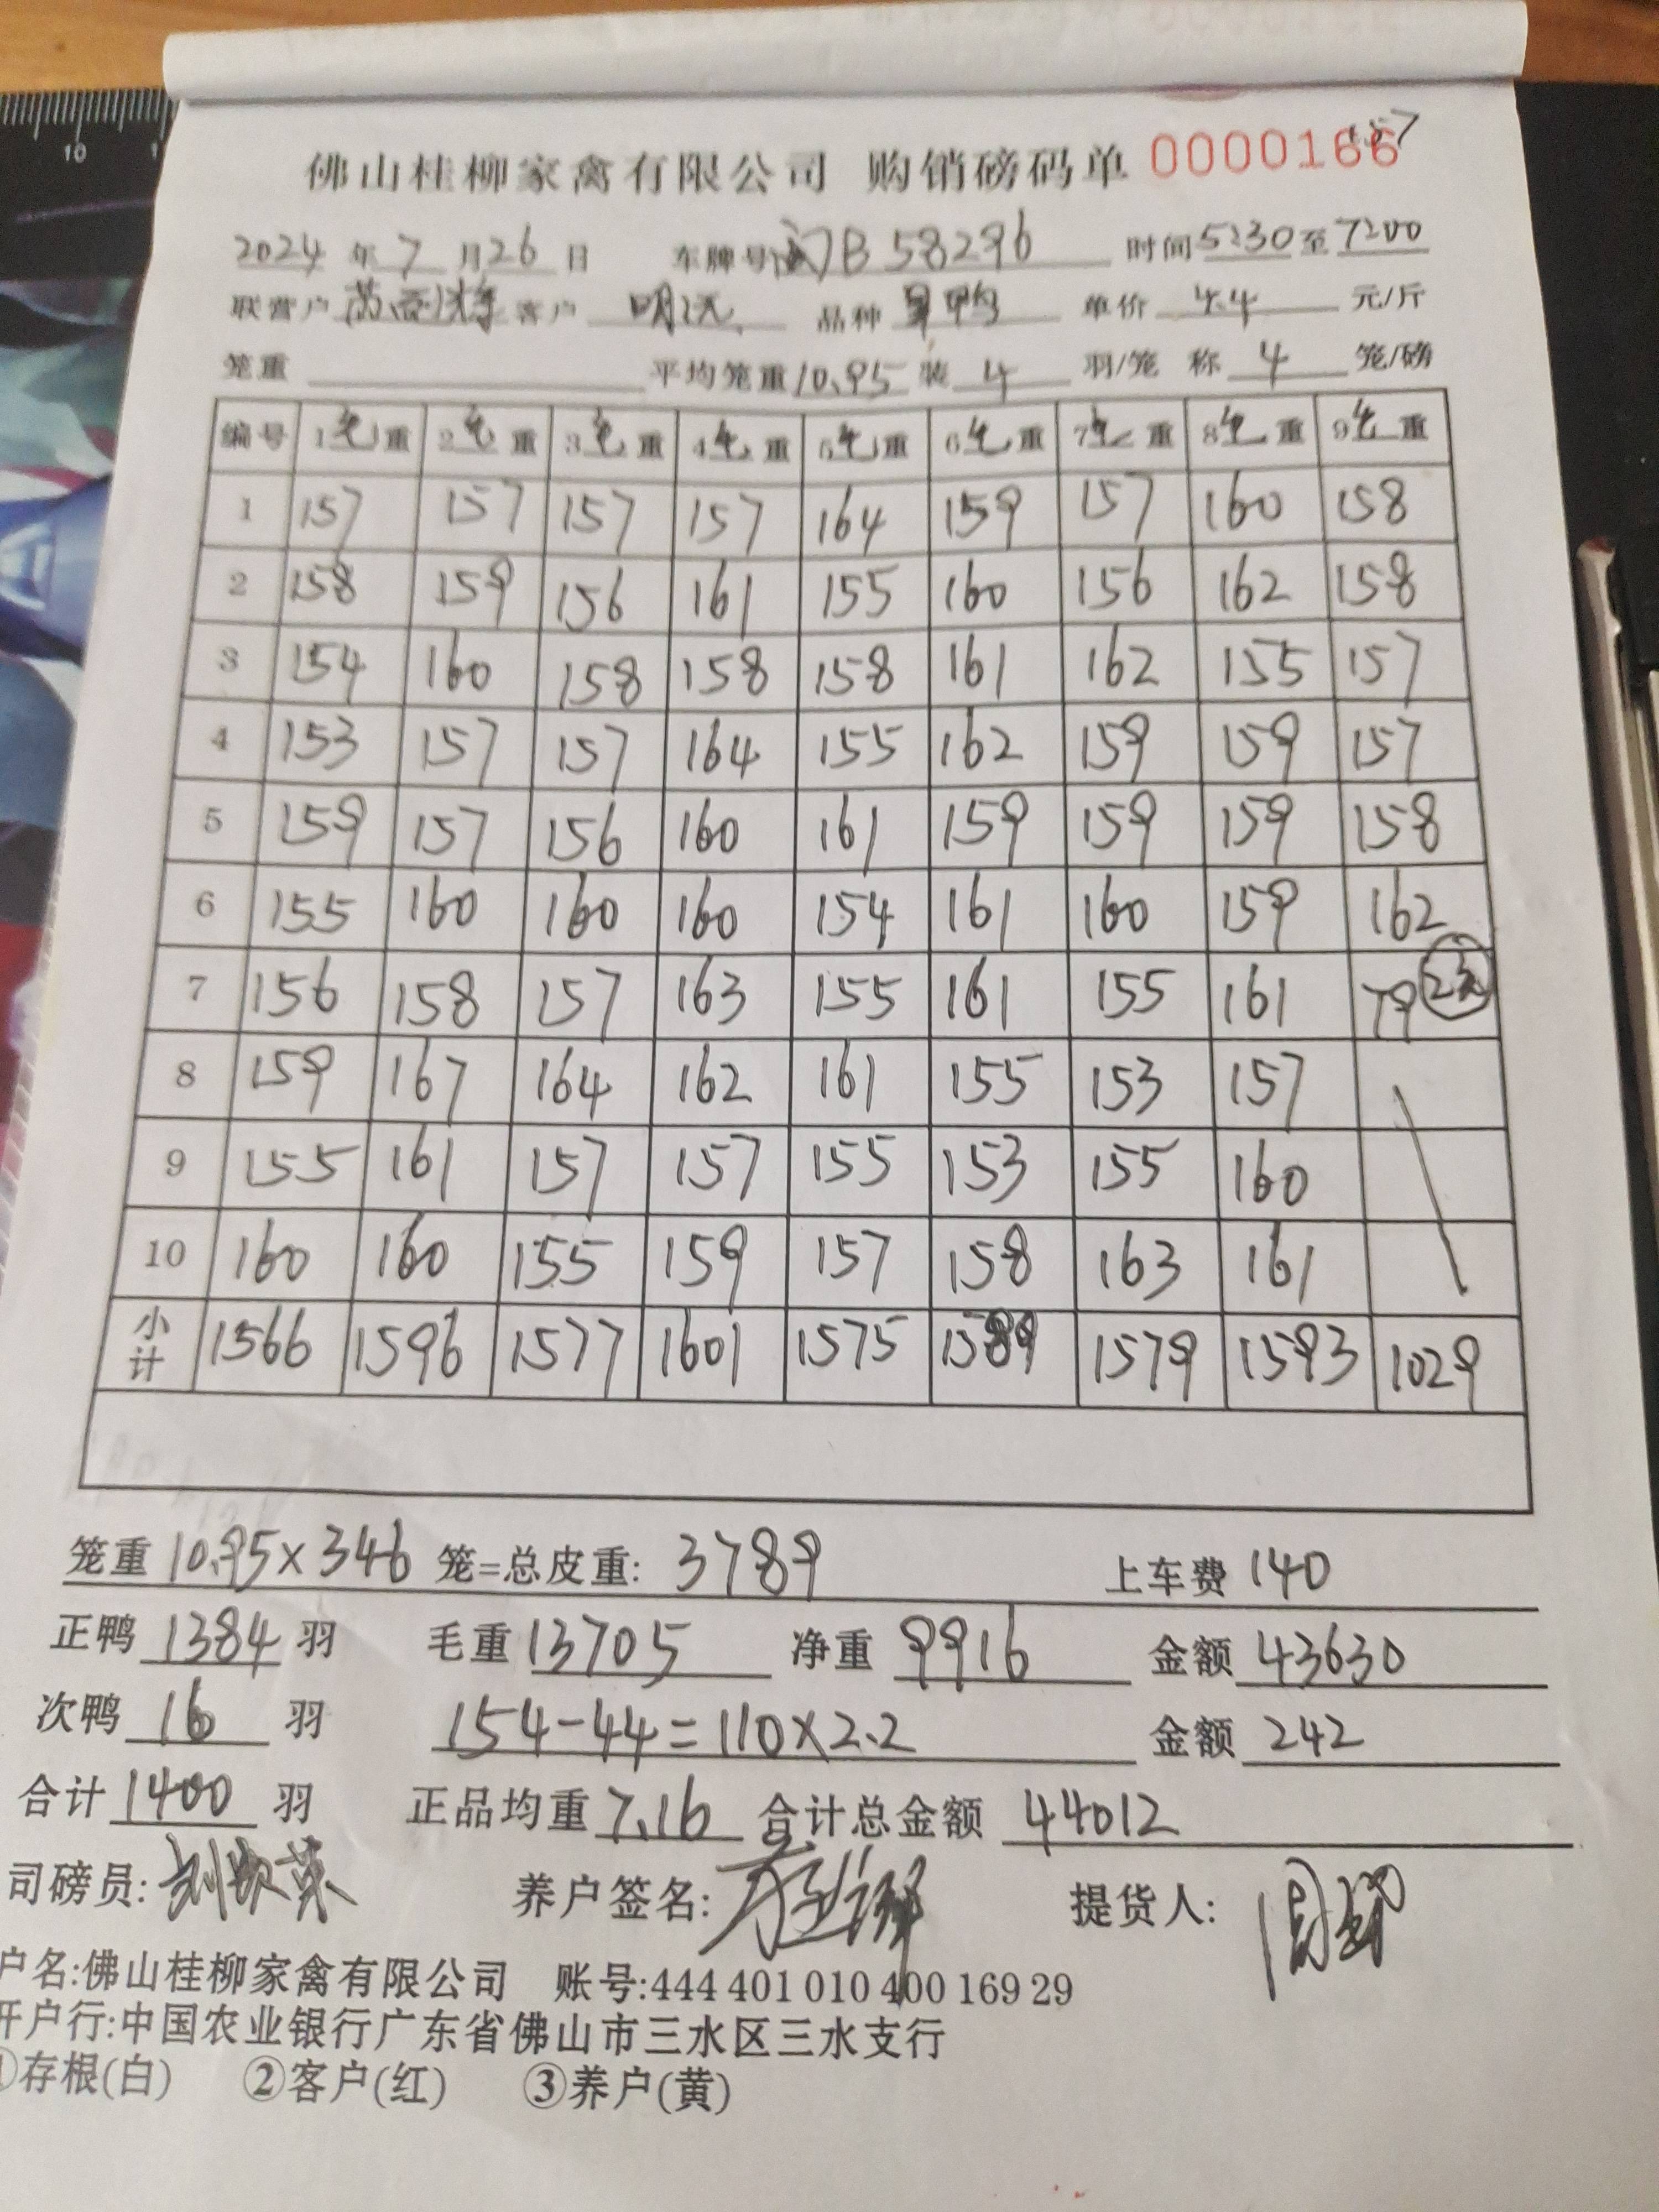 佛山桂柳家禽有限公司 购销磅码单 0000166 157
2024 年 7 月 26 日 车牌号 闽B58296 时间 5:30 至 7:00
联营户 客户 明洪 品种 旱鸭 单价 4.4 元/斤
笼重 平均笼重 10.95 装 4 羽/笼 称 4 笼/磅
编号 1毛重 2毛重 3毛重 4毛重 5毛重 6毛重 7毛重 8毛重 9毛重
1 157 157 157 157 164 159 157 160 158
2 158 159 156 161 155 160 156 162 158
3 154 160 158 158 158 161 162 155 157
4 153 157 157 164 155 162 159 159 157
5 159 157 156 160 161 159 159 159 158
6 155 160 160 160 154 161 160 159 162
7 156 158 157 163 155 161 155 161 79 2笼
8 159 167 164 162 161 155 153 157
9 155 161 157 157 155 153 155 160
10 160 160 155 159 157 158 163 161
小计 1566 1596 1577 1601 1575 1589 1579 1593 1029
笼重 10.95×346 笼=总皮重: 3789 上车费 140
正鸭 1384 羽 毛重 13705 净重 9916 金额 43630
次鸭 16 羽 154-44=110×2.2 金额 242
合计 1400 羽 正品均重 7.16 合计总金额 44012
司磅员: 养户签名: 提货人:
户名:佛山桂柳家禽有限公司 账号:444 401 010 400 169 29
开户行:中国农业银行广东省佛山市三水区三水支行
①存根(白) ②客户(红) ③养户(黄)